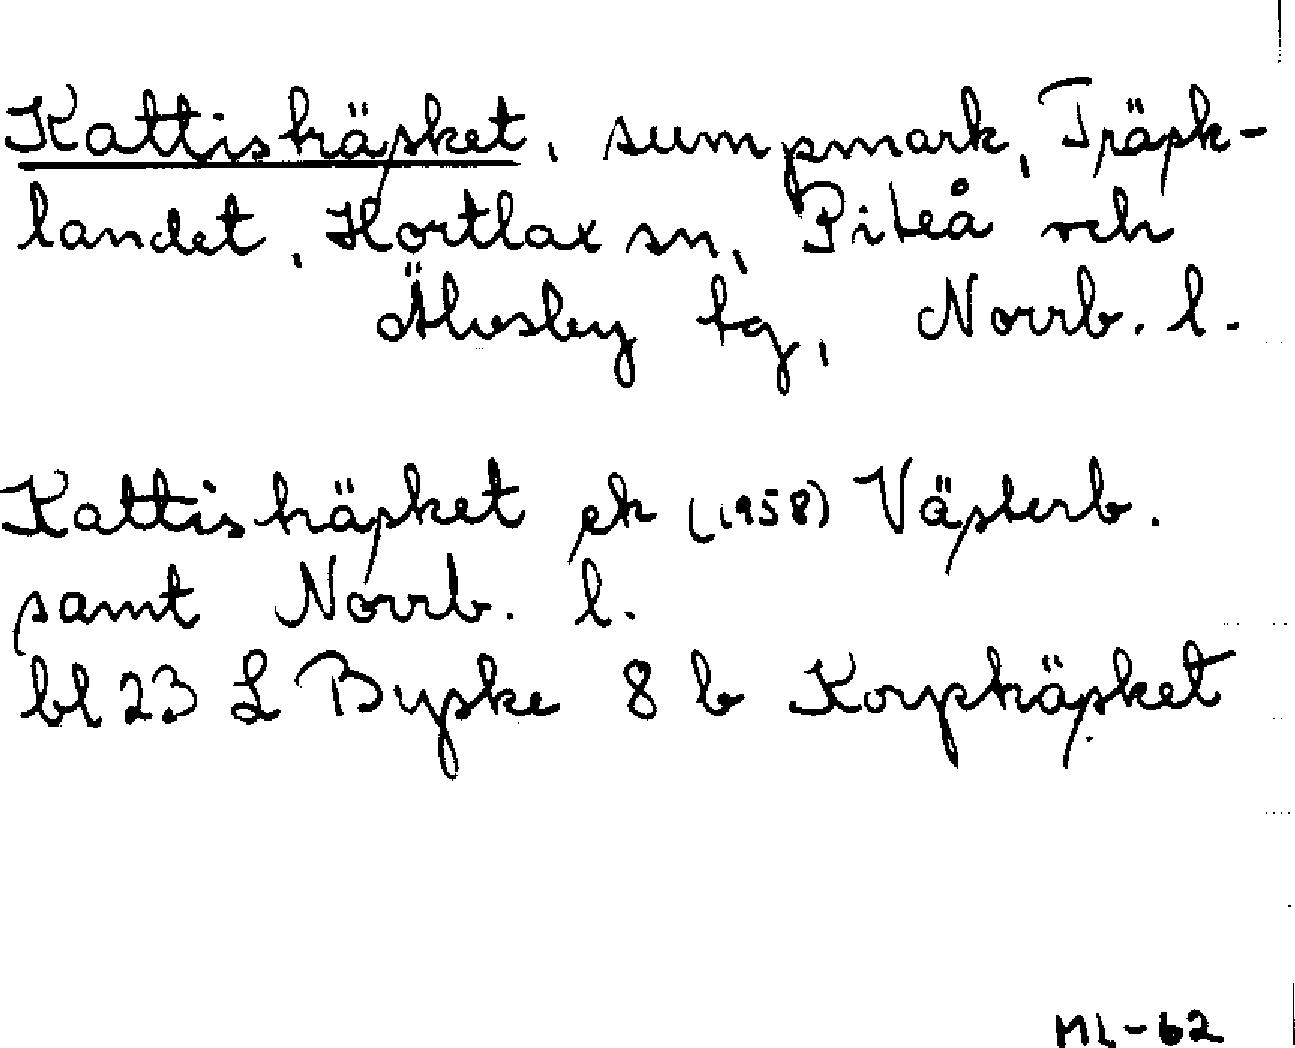 Kattisträsket, sumpmark, Träsk-
landet, Hortlax sn, Piteå och
Älvsby tg, Norrb. l.
Kattisträsket ek (1958) Västerb.
samt Norrb. l.
bl 23 L Byske 8 b Korpträsket
ML-62